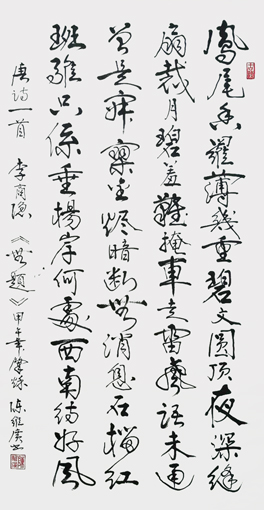 鳳尾香羅薄幾重碧文圓頂夜深縫
扇裁月碧羞難掩車走雷聲語未通
曾是寂寥金燼暗斷無消息石榴紅
斑騅只係垂楊岸何處西南待好風
唐诗一首 李商隐《無題》甲午年肇秋 陈維廣书